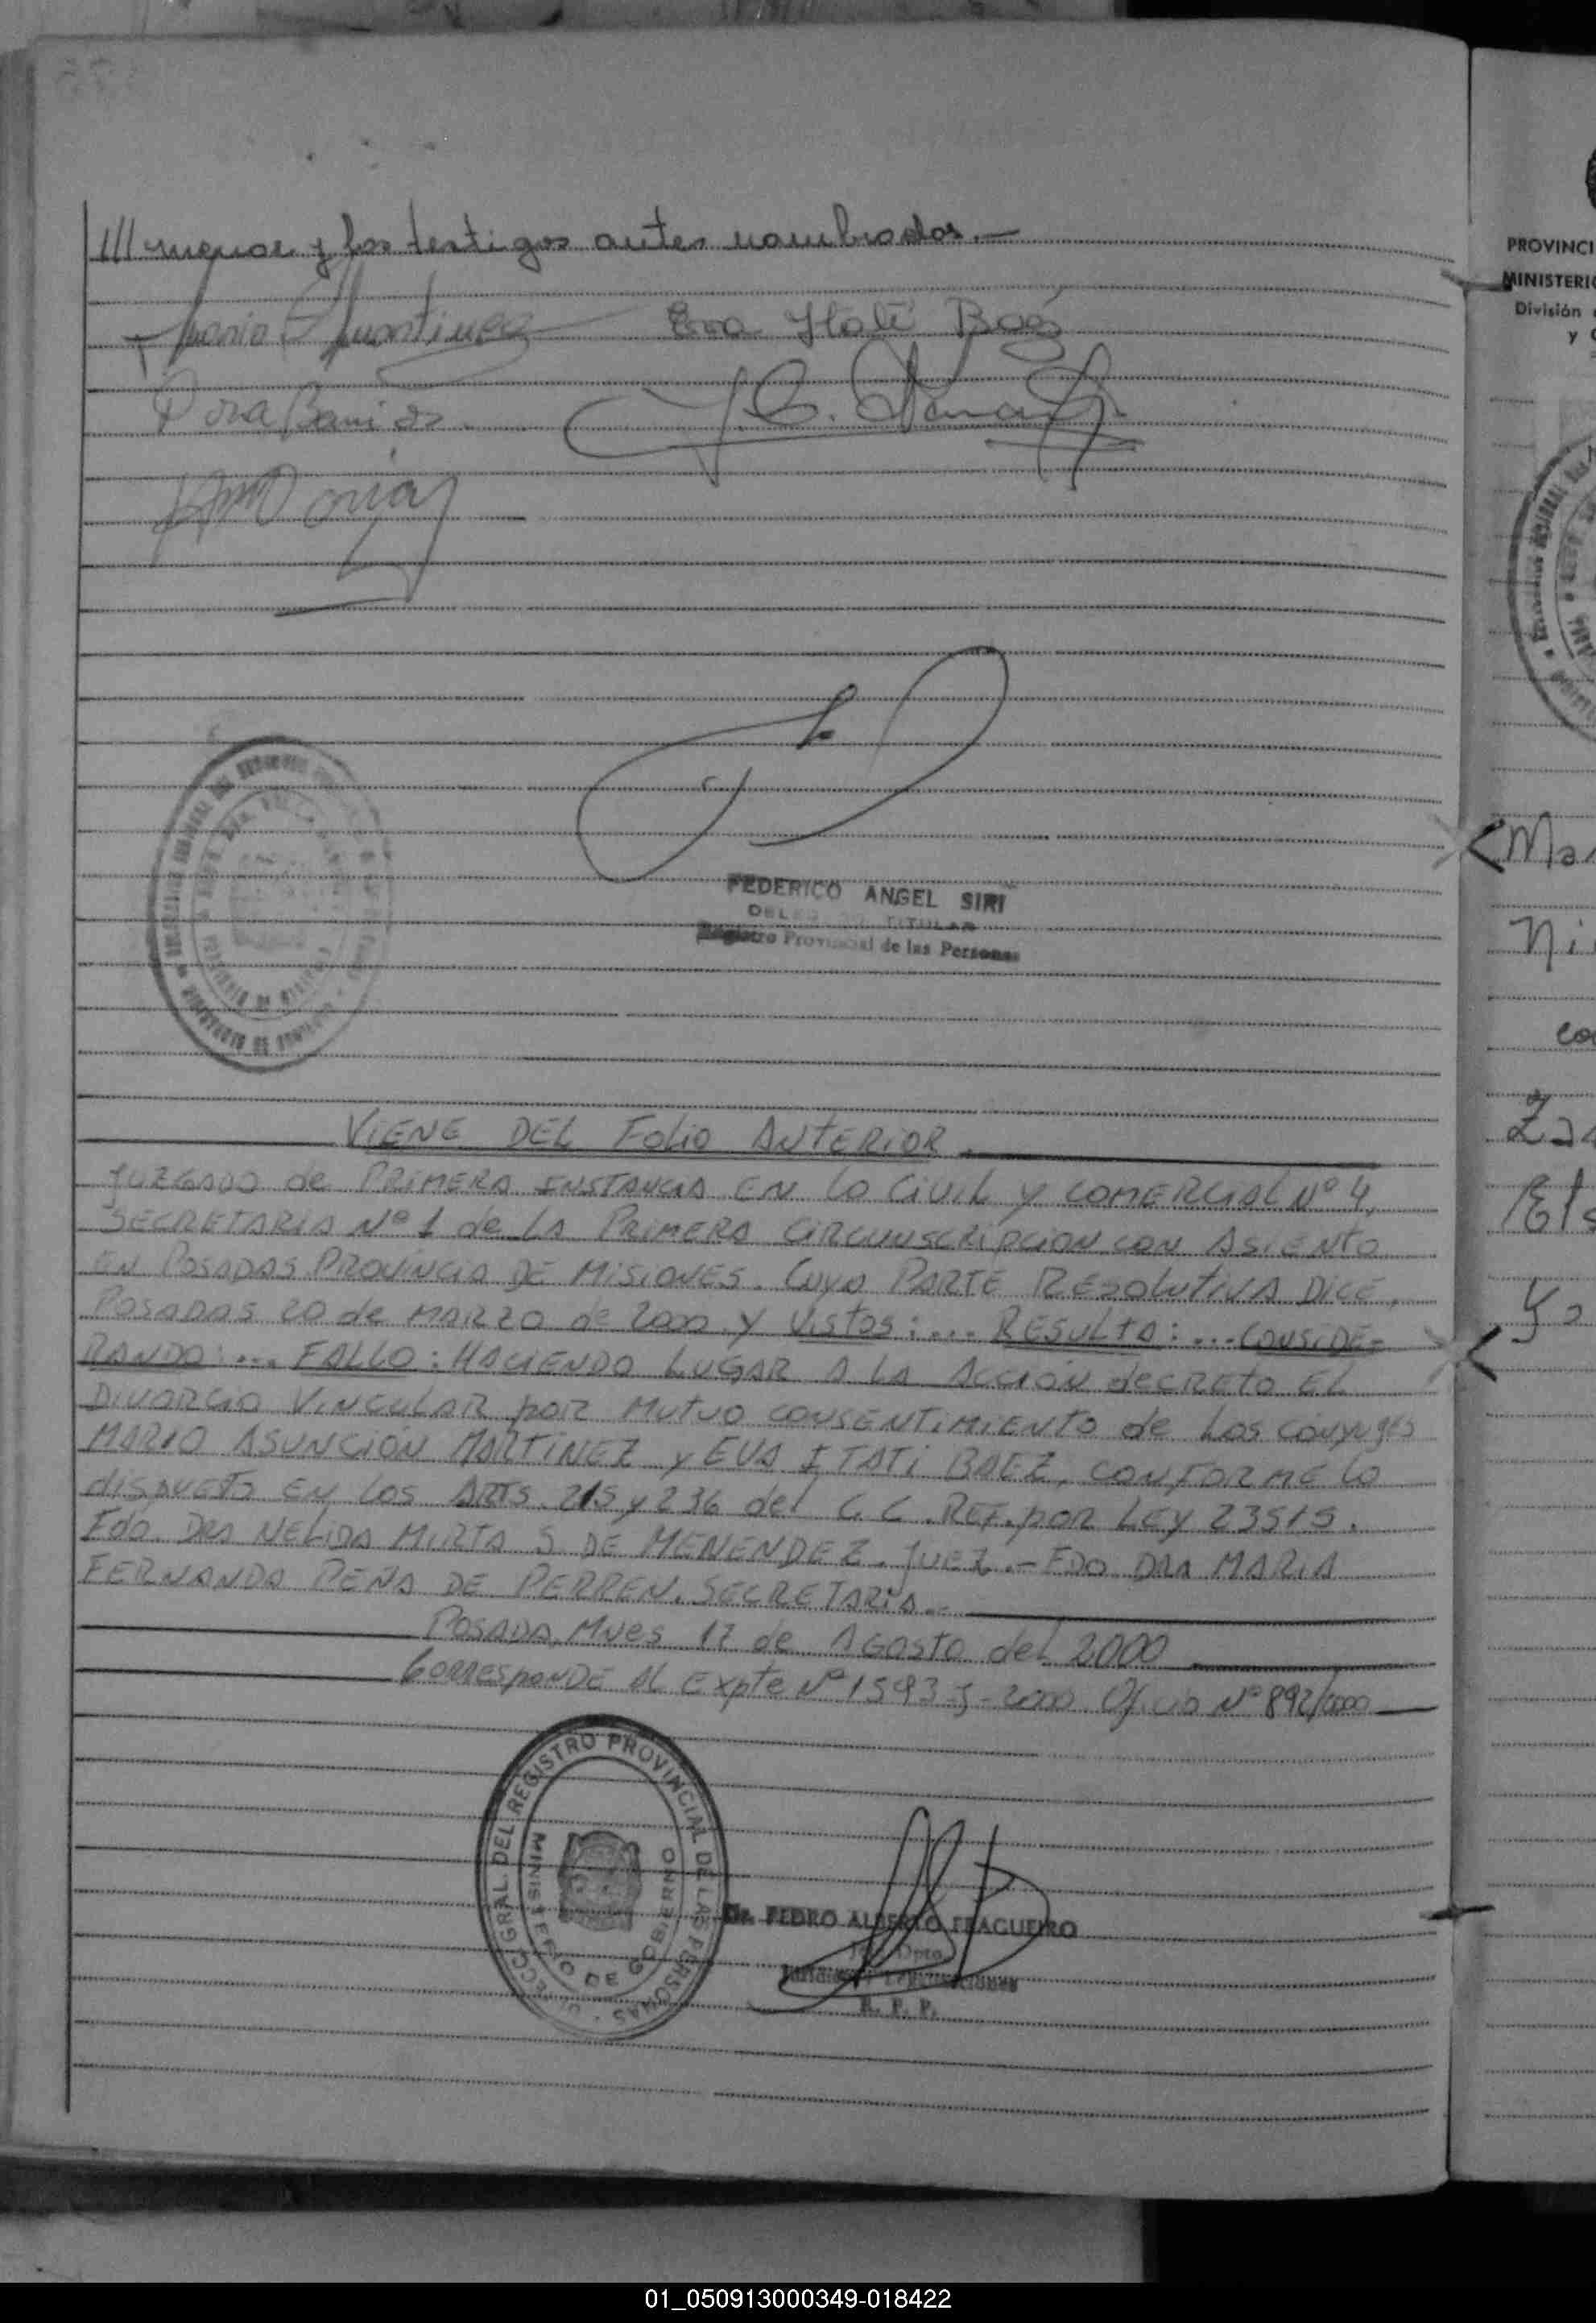 /// menor y los testigos antes nombrados.—
Mario Martinez Eva Itatí Baéz
FEDERICO ANGEL SIRI
DELEGADO TITULAR
Registro Provincial de las Personas
VIENE DEL FOLIO ANTERIOR
JUZGADO de PRIMERA INSTANCIA EN LO CIVIL Y COMERCIAL Nº 4,
SECRETARIA Nº 1 de LA PRIMERA CIRCUNSCRIPCION CON ASIENTO
EN POSADAS PROVINCIA DE MISIONES. CUYA PARTE RESOLUTIVA DICE,
POSADAS 20 de MARZO de 2000 Y VISTOS:... RESULTA:... CONSIDE-
RANDO:... FALLO: HACIENDO LUGAR A LA ACCIÓN decRETO EL
DIVORCIO VINCULAR POR MUTUO CONSENTIMIENTO de LOS cónyuges
MARIO ASUNCIÓN MARTINEZ y EVA ITATI BAEZ, CONFORME LO
dISPUESTO EN LOS ARTS. 215 y 236 del C. C. REF. POR LEY 23515.
Fdo. DRA NELIDA MIRTA S DE MENENDEZ. JUEZ.- FDO DRA MARIA
FERNANDA PEÑA DE PERREN. SECRETARIA.-
POSADA, Mnes 17 de AGOSTO del 2000
CORRESPONDE AL Expte Nº 1593-J-2000 Oficio Nº 892/2000
DIRECC. GRAL. DEL REGISTRO PROVINCIAL DE LAS PERSONAS
MINISTERIO DE GOBIERNO
Dr. PEDRO ALBERTO FRAGUEIRO
Jefe Dpto.
R. P. P.
PROVINCI
MINISTERIO
División
y
Ma
Ni
co
El
Yo
01_050913000349-018422